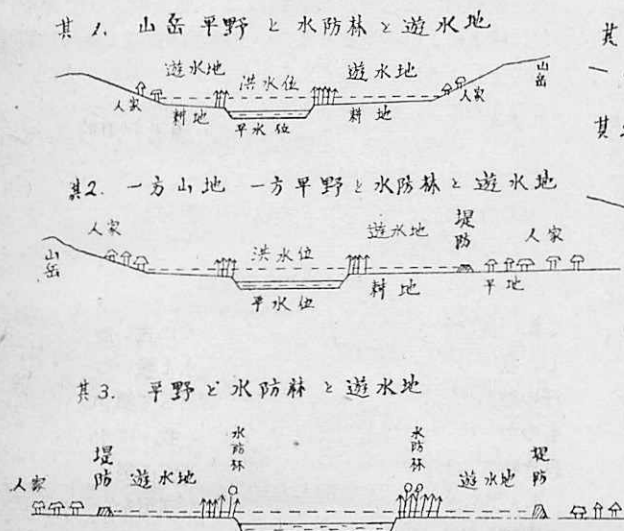 其1. 山岳平野と水防林と遊水地
遊水地 洪水位 遊水地 山岳
人家 耕地 平水位 耕地 人家
其2. 一方山地 一方平野と水防林と遊水地
人家 洪水位 遊水地 堤防 人家
山岳 平水位 耕地 平地
其3. 平野と水防林と遊水地
水防林 水防林
人家 堤防 遊水地 遊水地 堤防 人家
其
其